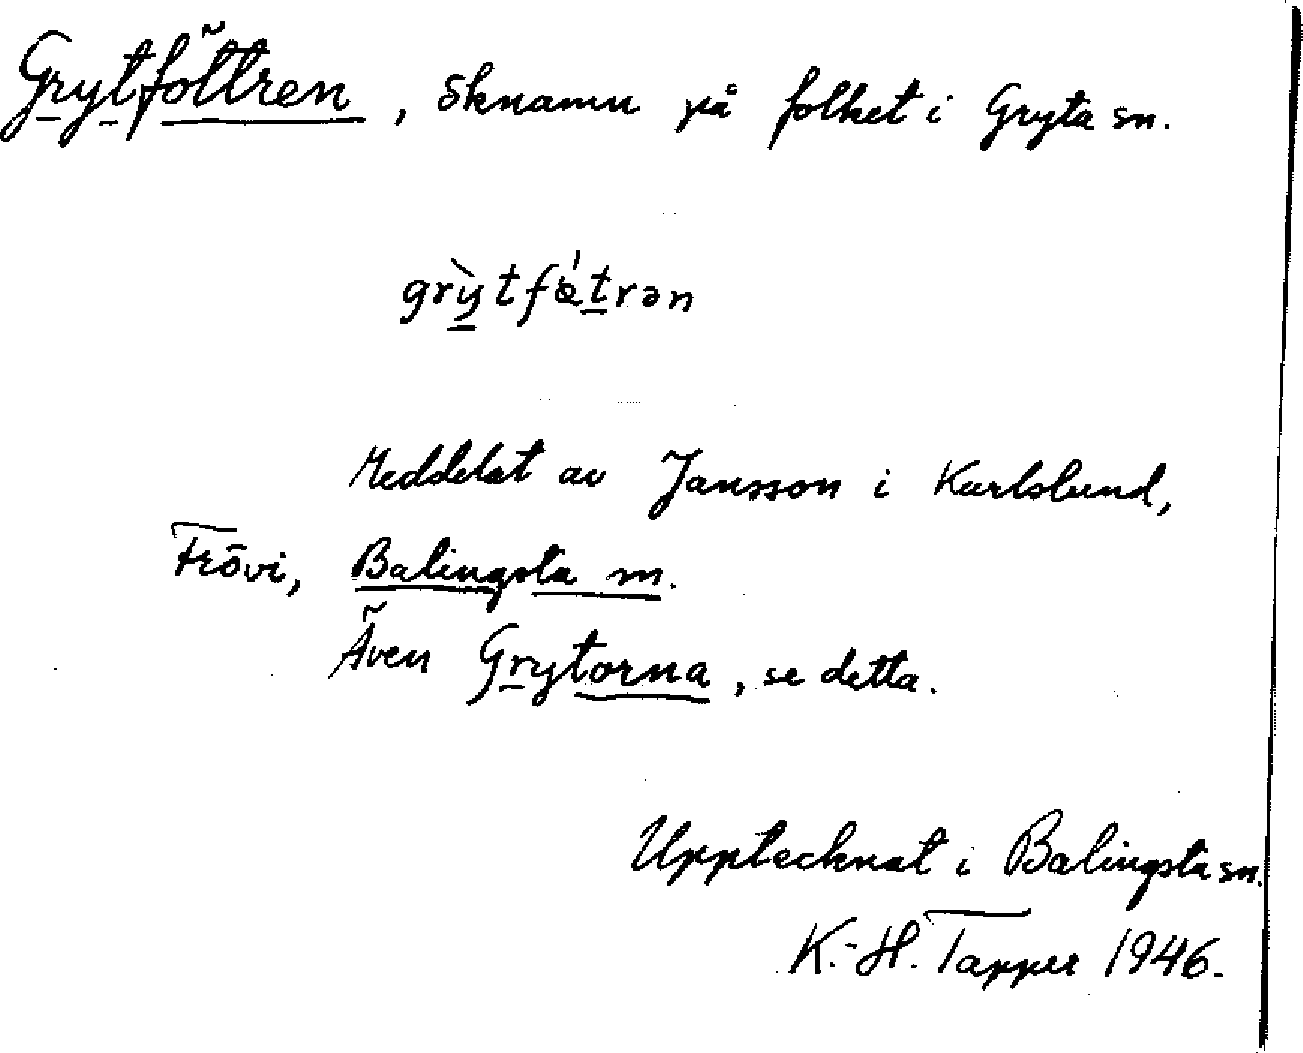 Grytföttren, öknamn på folket i Gryta sn.
grỳtfǿtrən
Meddelat av Jansson i Karlslund,
Frövi, Balingsta sn.
Även Grytorna, se detta.
Upptecknat i Balingsta sn.
K.-H. Tapper 1946.